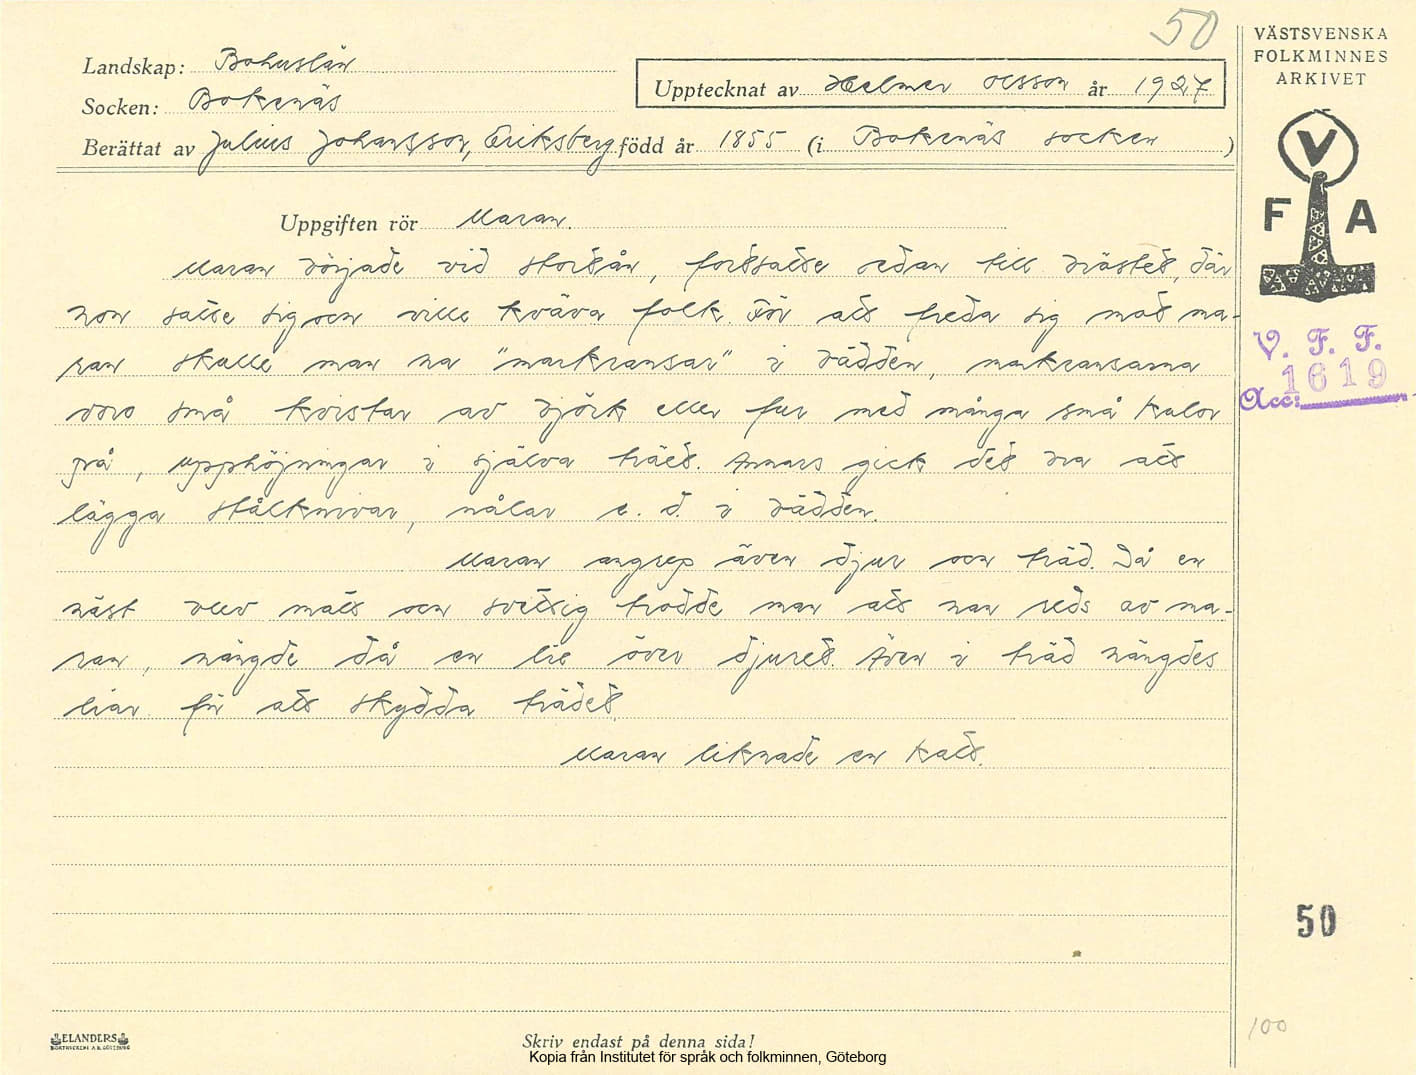 50
VÄSTSVENSKA
FOLKMINNES
ARKIVET
Landskap: Bohuslän
Upptecknat av Helmer Olsson år 1927
Socken: Bokenäs
Berättat av Julius Johansson, Eriksberg född år 1855 (i Bokenäs socken)
V
F A
Uppgiften rör Maran.
Maran började vid stortån, fortsatte sedan till bröstet, där
hon satte sig och ville kväva folk. För att freda sig mot ma-
ran skulle man ha "markransar" i bädden, markransarna
voro små kvistar av björk eller fur med många små kulor
på, upphöjningar i själva träet. Annars gick det bra att
lägga stålknivar, nålar e. d. i bädden.
Maran angrep även djur och träd. Då en
häst blev matt och svettig trodde man att han reds av ma-
ran, hängde då en lie över djuret. Även i träd hängdes
liar för att skydda trädet.
Maran liknade en katt.
V. F. F.
Acc: 1619
50
100
ELANDERS
Skriv endast på denna sida!
Kopia från Institutet för språk och folkminnen, Göteborg